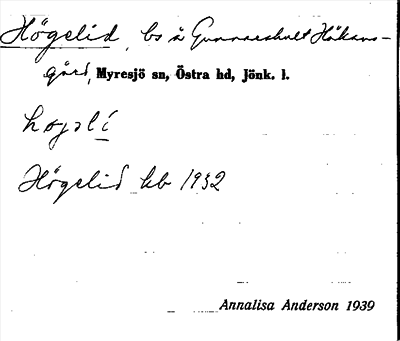 Högelid, bs å Gunnarshult Håkans-
gård, Myresjö sn, Östra hd, Jönk. l.
høgəlí
Högelid kb 1932
Annalisa Anderson 1939